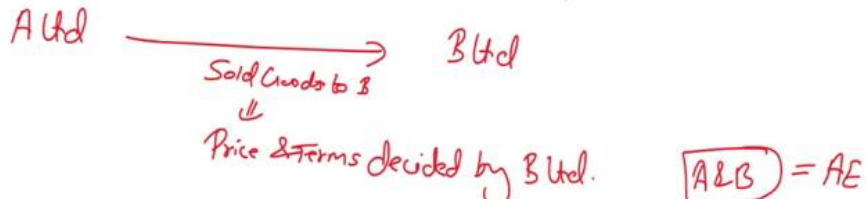 A Ltd → B Ltd
Sold Goods to B
⇓
Price & Terms decided by B Ltd. A&B = AE